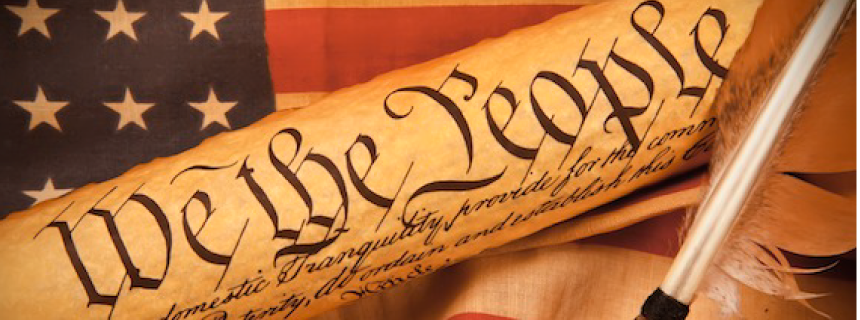 We the People
domestic Tranquility, provide for the comm
terity, do ordain and establish this C